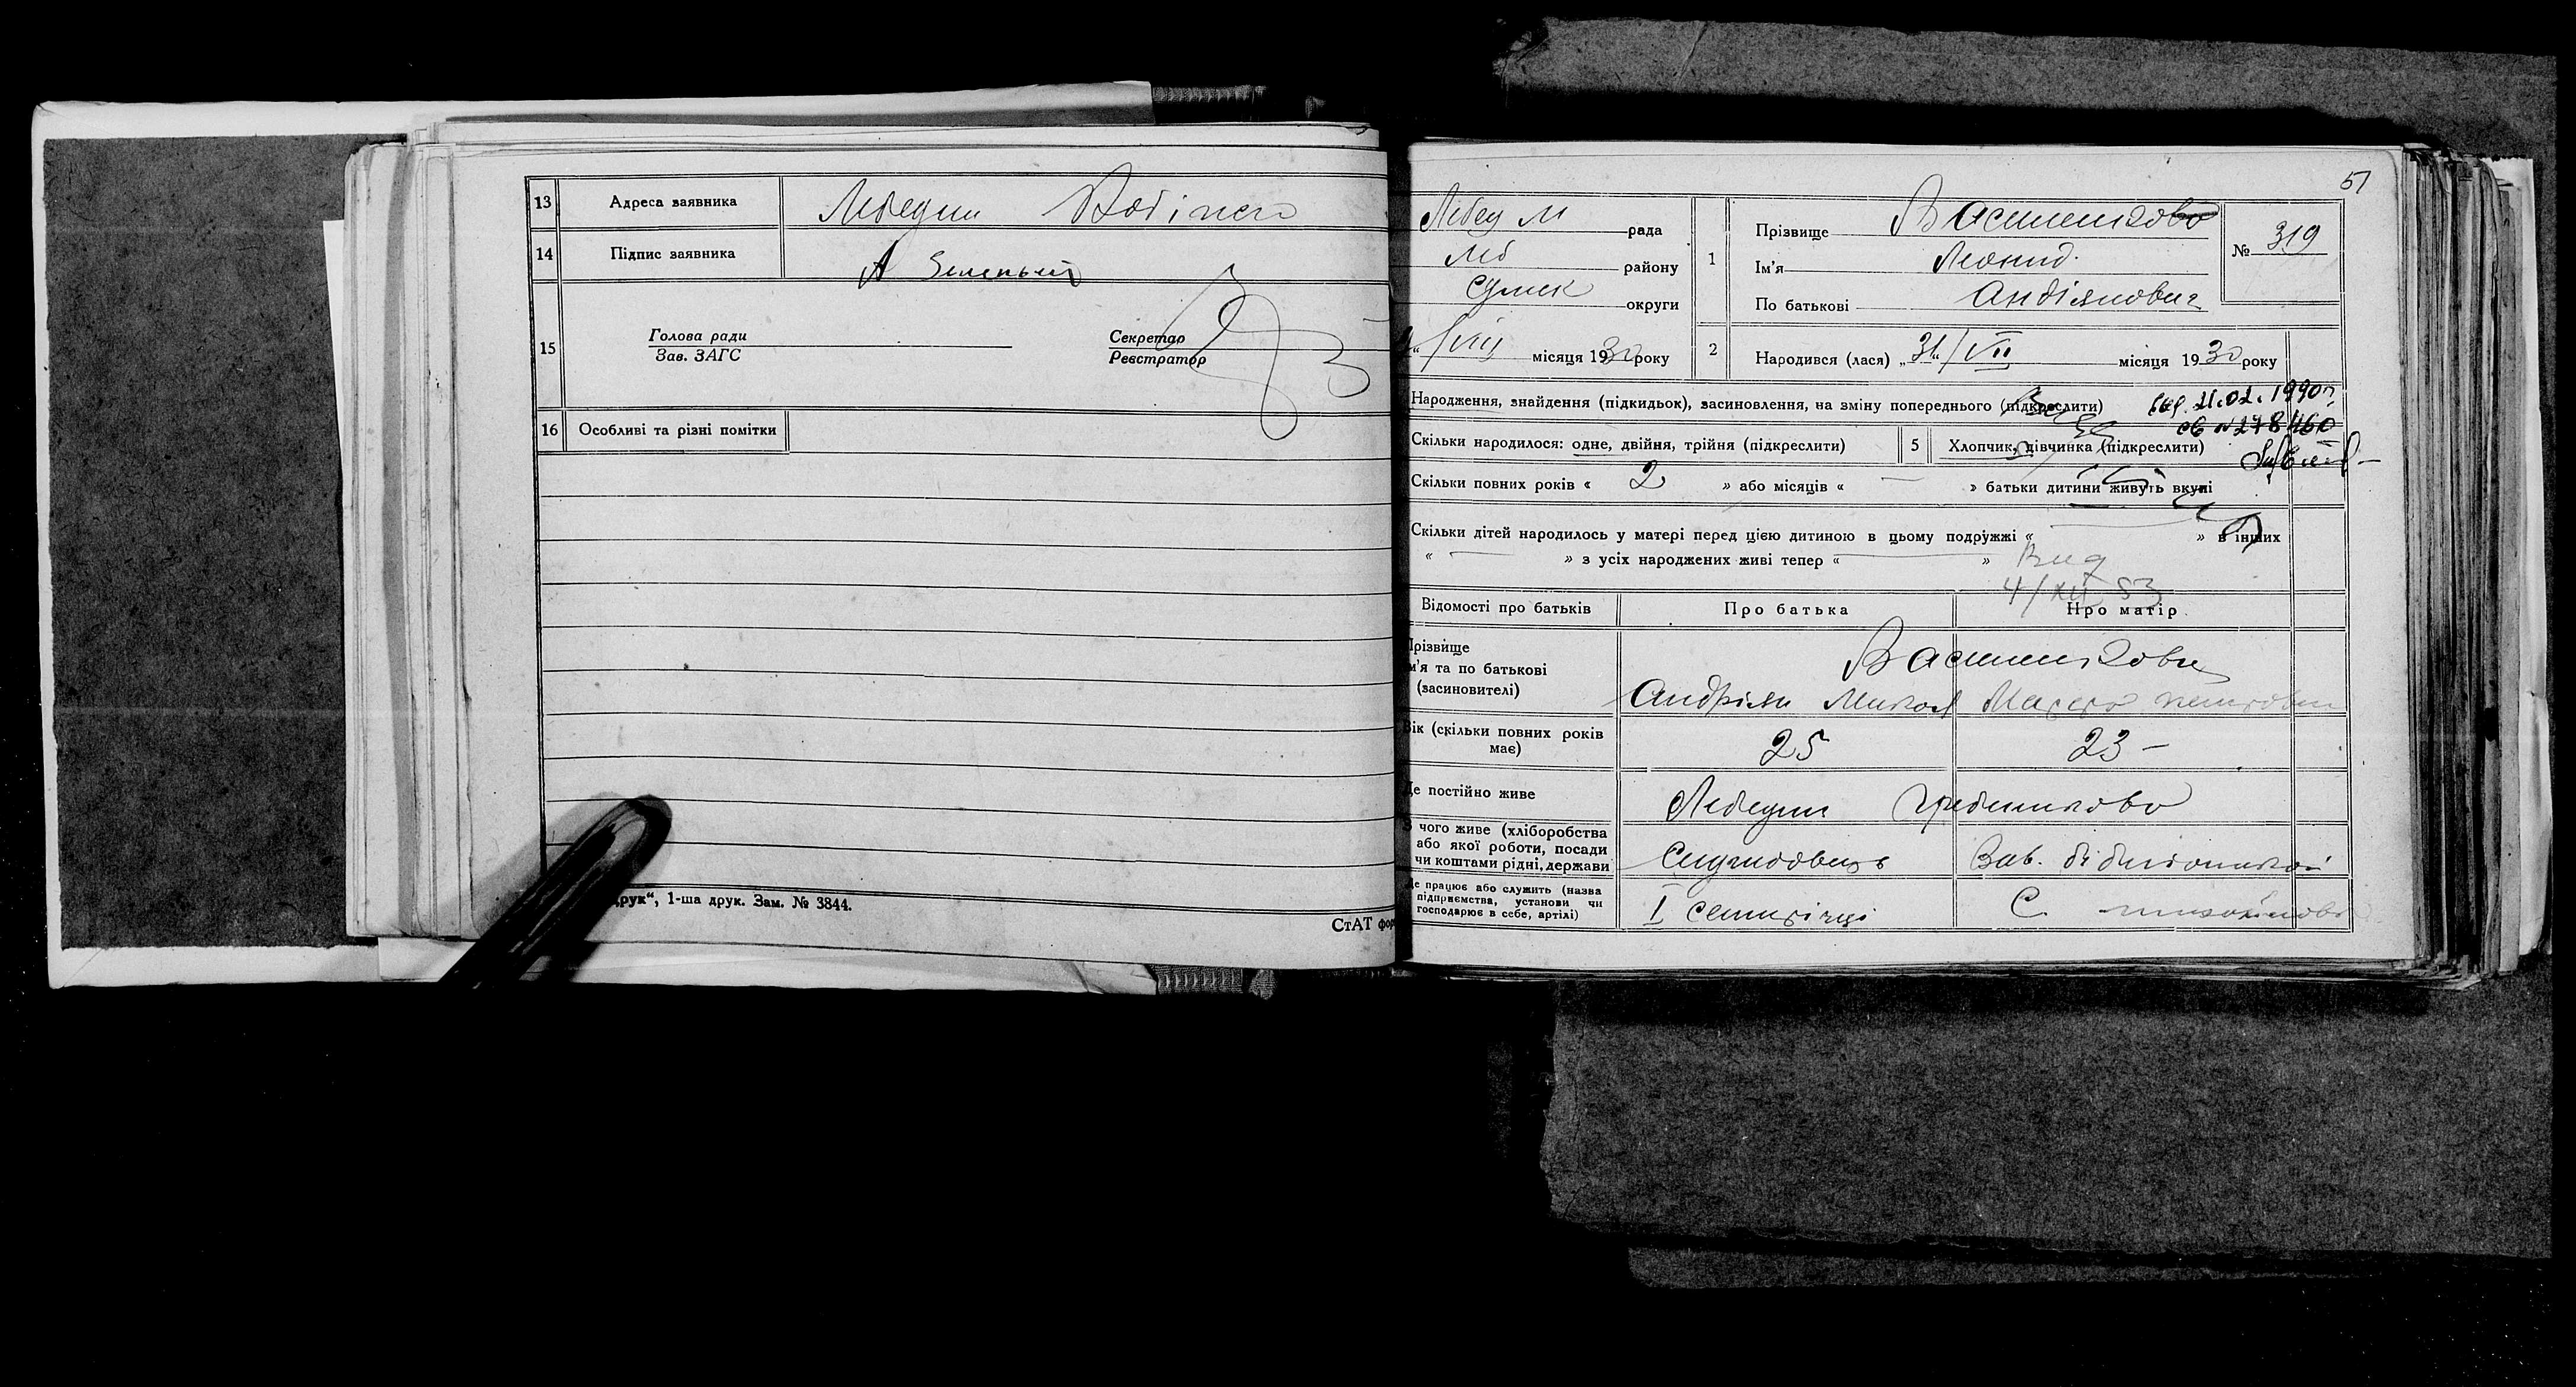 13 Адреса заявника Лебедин
14 Підпис заявника А Зеленый
15 Голова ради
Зав. ЗАГС
Секретар
Реєстратор
16 Особливі та різні помітки
друк“, 1-ша друк. Зам. № 3844.
СтАТ фор
51
Лебед М рада
Леб району
Сумск округи
/VIII місяця 1930 року
1 Прізвище
Ім’я Леонид.
По батькові Андіянович
№ 319
2 Народився (лася) „31“/VII місяця 1930 року
Народження, знайдення (підкидьок), засиновлення, на зміну попереднього (підкреслити)
21.02.1990г.
св № 278460
Скільки народилося: одне, двійня, трійня (підкреслити) 5 Хлопчик, дівчинка (підкреслити)
Скільки повних років « 2 » або місяців « — » батьки дитини живуть вкупі
Скільки дітей народилось у матері перед цією дитиною в цьому подружжі « — » в інших
« — » з усіх народжених живі тепер « — »
Вид
4/XII 53
Відомості про батьків Про батька Про матір
Прізвище
м’я та по батькові
(засиновителі)
Андріян Микол
Вік (скільки повних років
має) 25 23 –
Де постійно живе Лебедин
З чого живе (хліборобства
або якої роботи, посади
чи коштами рідні, держави Зав. бібліотекой
Де працює або служить (назва
підприємства, установи чи
господарює в себе, артілі) І семирічці С.